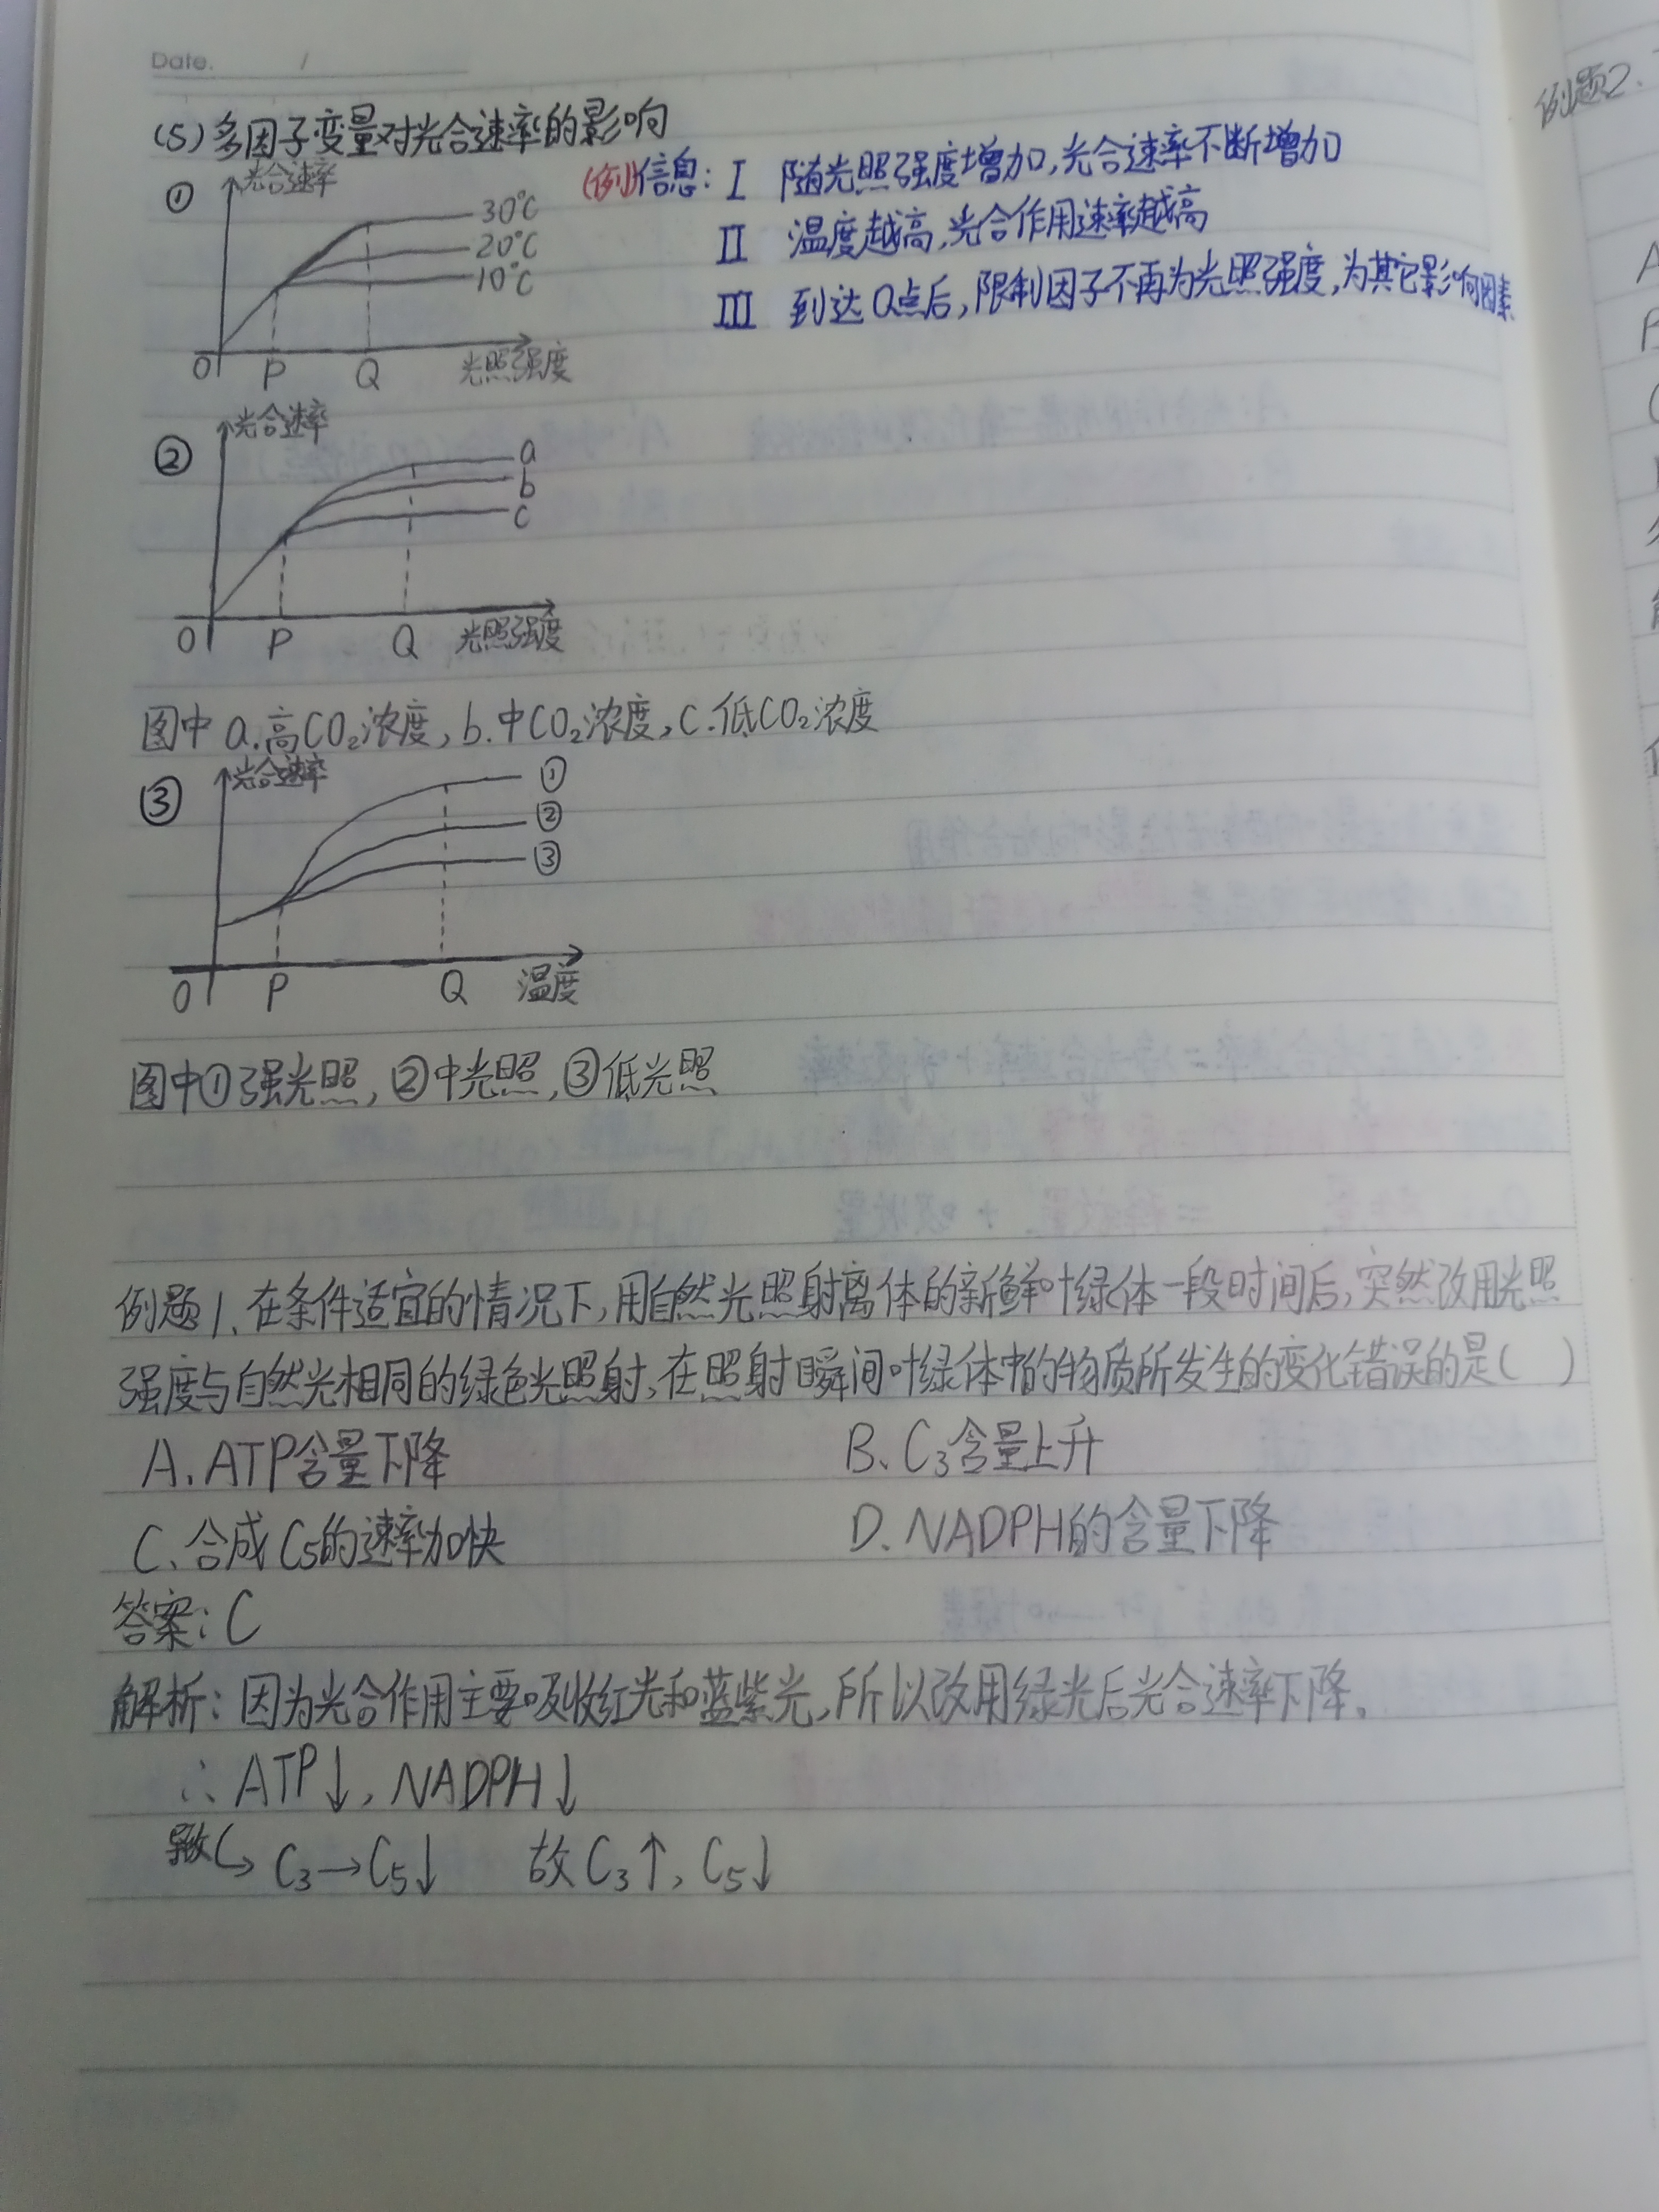 Date. /
(5)多因子变量对光合速率的影响
① 光合速率
30℃
20℃
10℃
O P Q 光照强度
(例)信息: Ⅰ 随光照强度增加,光合速率不断增加
Ⅱ 温度越高,光合作用速率越高
Ⅲ 到达Q点后,限制因子不再为光照强度,为其它影响因素
② 光合速率
a
b
c
O P Q 光照强度
图中 a.高CO₂浓度, b.中CO₂浓度, c.低CO₂浓度
③ 光合速率
①
②
③
O P Q 温度
图中①强光照,②中光照,③低光照
例题1、在条件适宜的情况下,用自然光照射离体的新鲜叶绿体一段时间后,突然改用光照
强度与自然光相同的绿色光照射,在照射瞬间叶绿体中的物质所发生的变化错误的是( )
A、ATP含量下降 B、C₃含量上升
C、合成C₅的速率加快 D、NADPH的含量下降
答案: C
解析: 因为光合作用主要吸收红光和蓝紫光,所以改用绿光后光合速率下降。
∴ ATP↓, NADPH↓
导致↳ C₃→C₅↓ 故C₃↑, C₅↓
例题2.